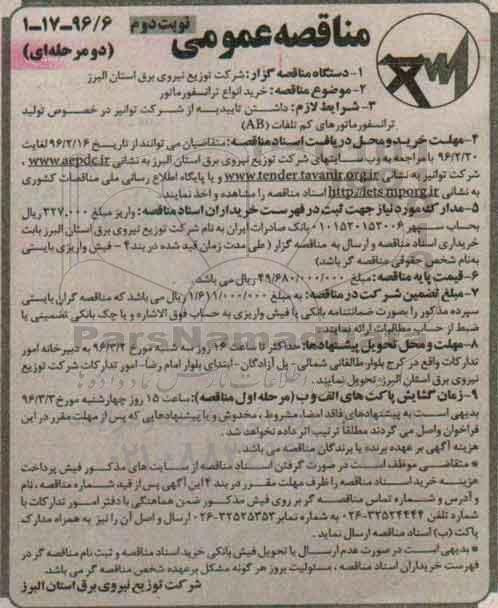 نوبت دوم ۹۶/۶-۱۷-۱
مناقصه عمومی (دو مرحله‌ای)
۱- دستگاه مناقصه گزار: شرکت توزیع نیروی برق استان البرز
۲- موضوع مناقصه: خرید انواع ترانسفورماتور
۳- شرایط لازم: داشتن تاییدیه از شرکت توانیر در خصوص تولید
ترانسفورماتورهای کم تلفات (AB)
۴- مهلت خرید و محل دریافت اسناد مناقصه: متقاضیان می توانند از تاریخ ۹۶/۲/۱۶ لغایت
۹۶/۲/۲۰ با مراجعه به وب سایتهای شرکت توزیع نیروی برق استان البرز به نشانی www.aepdc.ir ،
شرکت توانیر به نشانی www.tender.tavanir.org.ir و یا پایگاه اطلاع رسانی ملی مناقصات کشوری
به نشانی http://iets.mporg.ir اسناد مناقصه را مشاهده و اخذ نمایند.
۵- مدارک مورد نیاز جهت ثبت در فهرست خریداران اسناد مناقصه: واریز مبلغ ۳۲۷,۰۰۰ ریال
بحساب سپهر ۰۱۰۱۵۳۰۱۵۳۰۰۶ بانک صادرات ایران به نام شرکت توزیع نیروی برق استان البرز بابت
خریداری اسناد مناقصه و ارسال به مناقصه گزار (طی مدت زمان قید شده در بند ۴ - فیش واریزی بایستی
به نام شخص حقوقی مناقصه گر باشد)
۶- قیمت پایه مناقصه: مبلغ ۴۹/۶۸۰/۰۰۰/۰۰۰ ریال می باشد.
۷- مبلغ تضمین شرکت در مناقصه: به مبلغ ۱/۶۱۱/۰۰۰/۰۰۰ ریال می باشد که مناقصه گران بایستی
سپرده مذکور را بصورت ضمانتنامه بانکی یا فیش واریزی به حساب فوق الاشاره و یا چک بانکی تضمینی یا
ضبط از حساب مطالبات ارائه نمایند.
۸- مهلت و محل تحویل پیشنهادها: حداکثر تا ساعت ۱۶ روز سه شنبه مورخ ۹۶/۳/۲ به دبیرخانه امور
تدارکات واقع در کرج بلوار طالقانی شمالی - پل آزادگان - ابتدای بلوار امام رضا - امور تدارکات شرکت توزیع
نیروی برق استان البرز - تحویل نمایند.
۹- زمان گشایش پاکت های الف و ب (مرحله اول مناقصه): ساعت ۱۵ روز چهارشنبه مورخ ۹۶/۳/۳
بدیهی است به پیشنهادهای فاقد امضا، مشروط، مخدوش و یا پیشنهادهایی که پس از مهلت مقرر در این
فراخوان واصل می گردند مطلقاً ترتیب اثر داده نخواهد شد.
هزینه آگهی بر عهده برنده یا برندگان مناقصه می باشد.
* متقاضی موظف است در صورت گرفتن اسناد مناقصه از سایت های مذکور فیش پرداخت
هزینه خرید اسناد مناقصه را ظرف مهلت مقرر در بند ۴ این آگهی پس از قید شماره مناقصه، نام
و آدرس و شماره تماس مناقصه گر بر روی فیش مذکور ضمن هماهنگی با دفتر امور تدارکات با
شماره تلفن ۳۲۵۲۴۴۴۴-۰۲۶ به شماره نمابر ۳۲۵۲۵۳۵۳-۰۲۶ ارسال و اصل آن را نیز به همراه مدارک
پاکت (ب) اسناد مناقصه ارسال نماید.
* بدیهی است در صورت عدم ارسال یا تحویل فیش بانکی خرید اسناد مناقصه و ثبت نام مناقصه گر در
فهرست خریداران اسناد مناقصه، مسئولیت بروز هر گونه مشکل بر عهده شخص مناقصه گر می باشد.
شرکت توزیع نیروی برق استان البرز